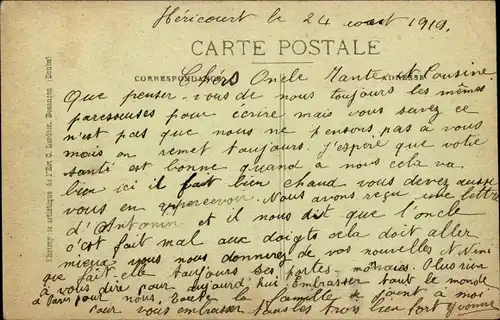 Héricourt le 24 aout 1919.
CARTE POSTALE
CORRESPONDANCE ADRESSE
Chers Oncle Tante et Cousine
Que penser vous de nous toujours les mêmes
paresseuses pour écrire mais vous savez ce
n'est pas que nous ne pensons pas a vous
mais on remet toujours. J'espère que votre
santé est bonne quand a nous cela va
bien ici il fait bien chaud vous devez aussi
vous en appercevoir. Nous avons reçu une lettre
d'Antonin et il nous dit que l'oncle
c'est fait mal aux doigts cela doit aller
mieux vous nous donnerez de vos nouvelles
que fait-elle toujours ses portes-monaies. Plus rien
à vous dire pour aujourd'hui. Embrasser tout le monde
à Paris pour nous. Toute la famille se joint à moi
pour vous embrasser tous les trois bien fort Yvonne
Phototyp. artistique de l'Est C. Lardier, Besançon (Doubs)